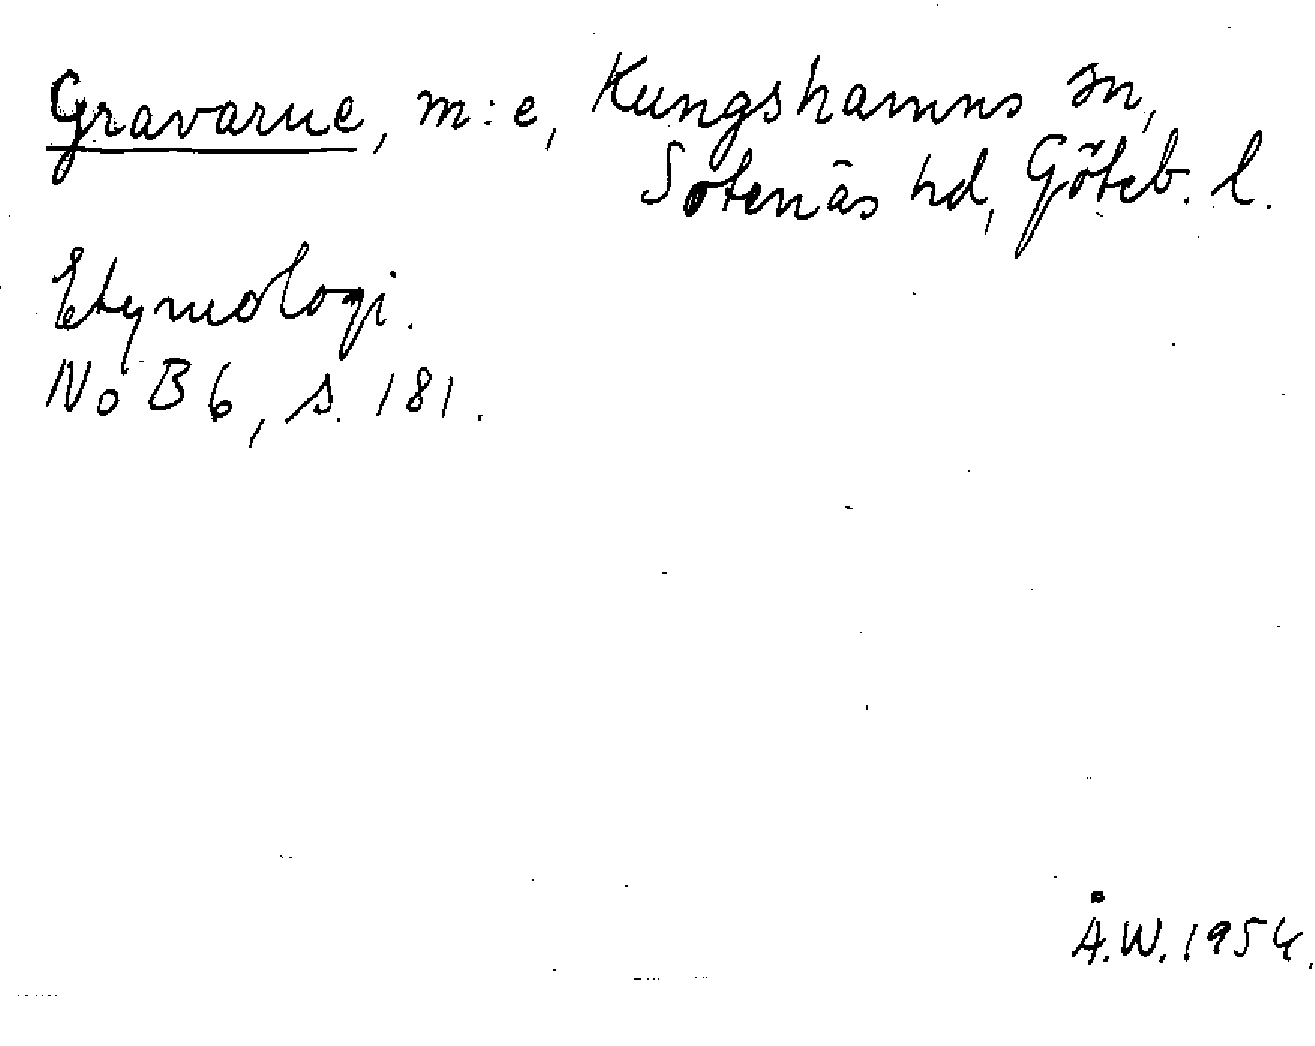 Gravarne, m:e, Kungshamns sn,
Sotenäs hd, Göteb. l.
Etymologi.
NoB 6, s. 181.
Å.W. 1954.